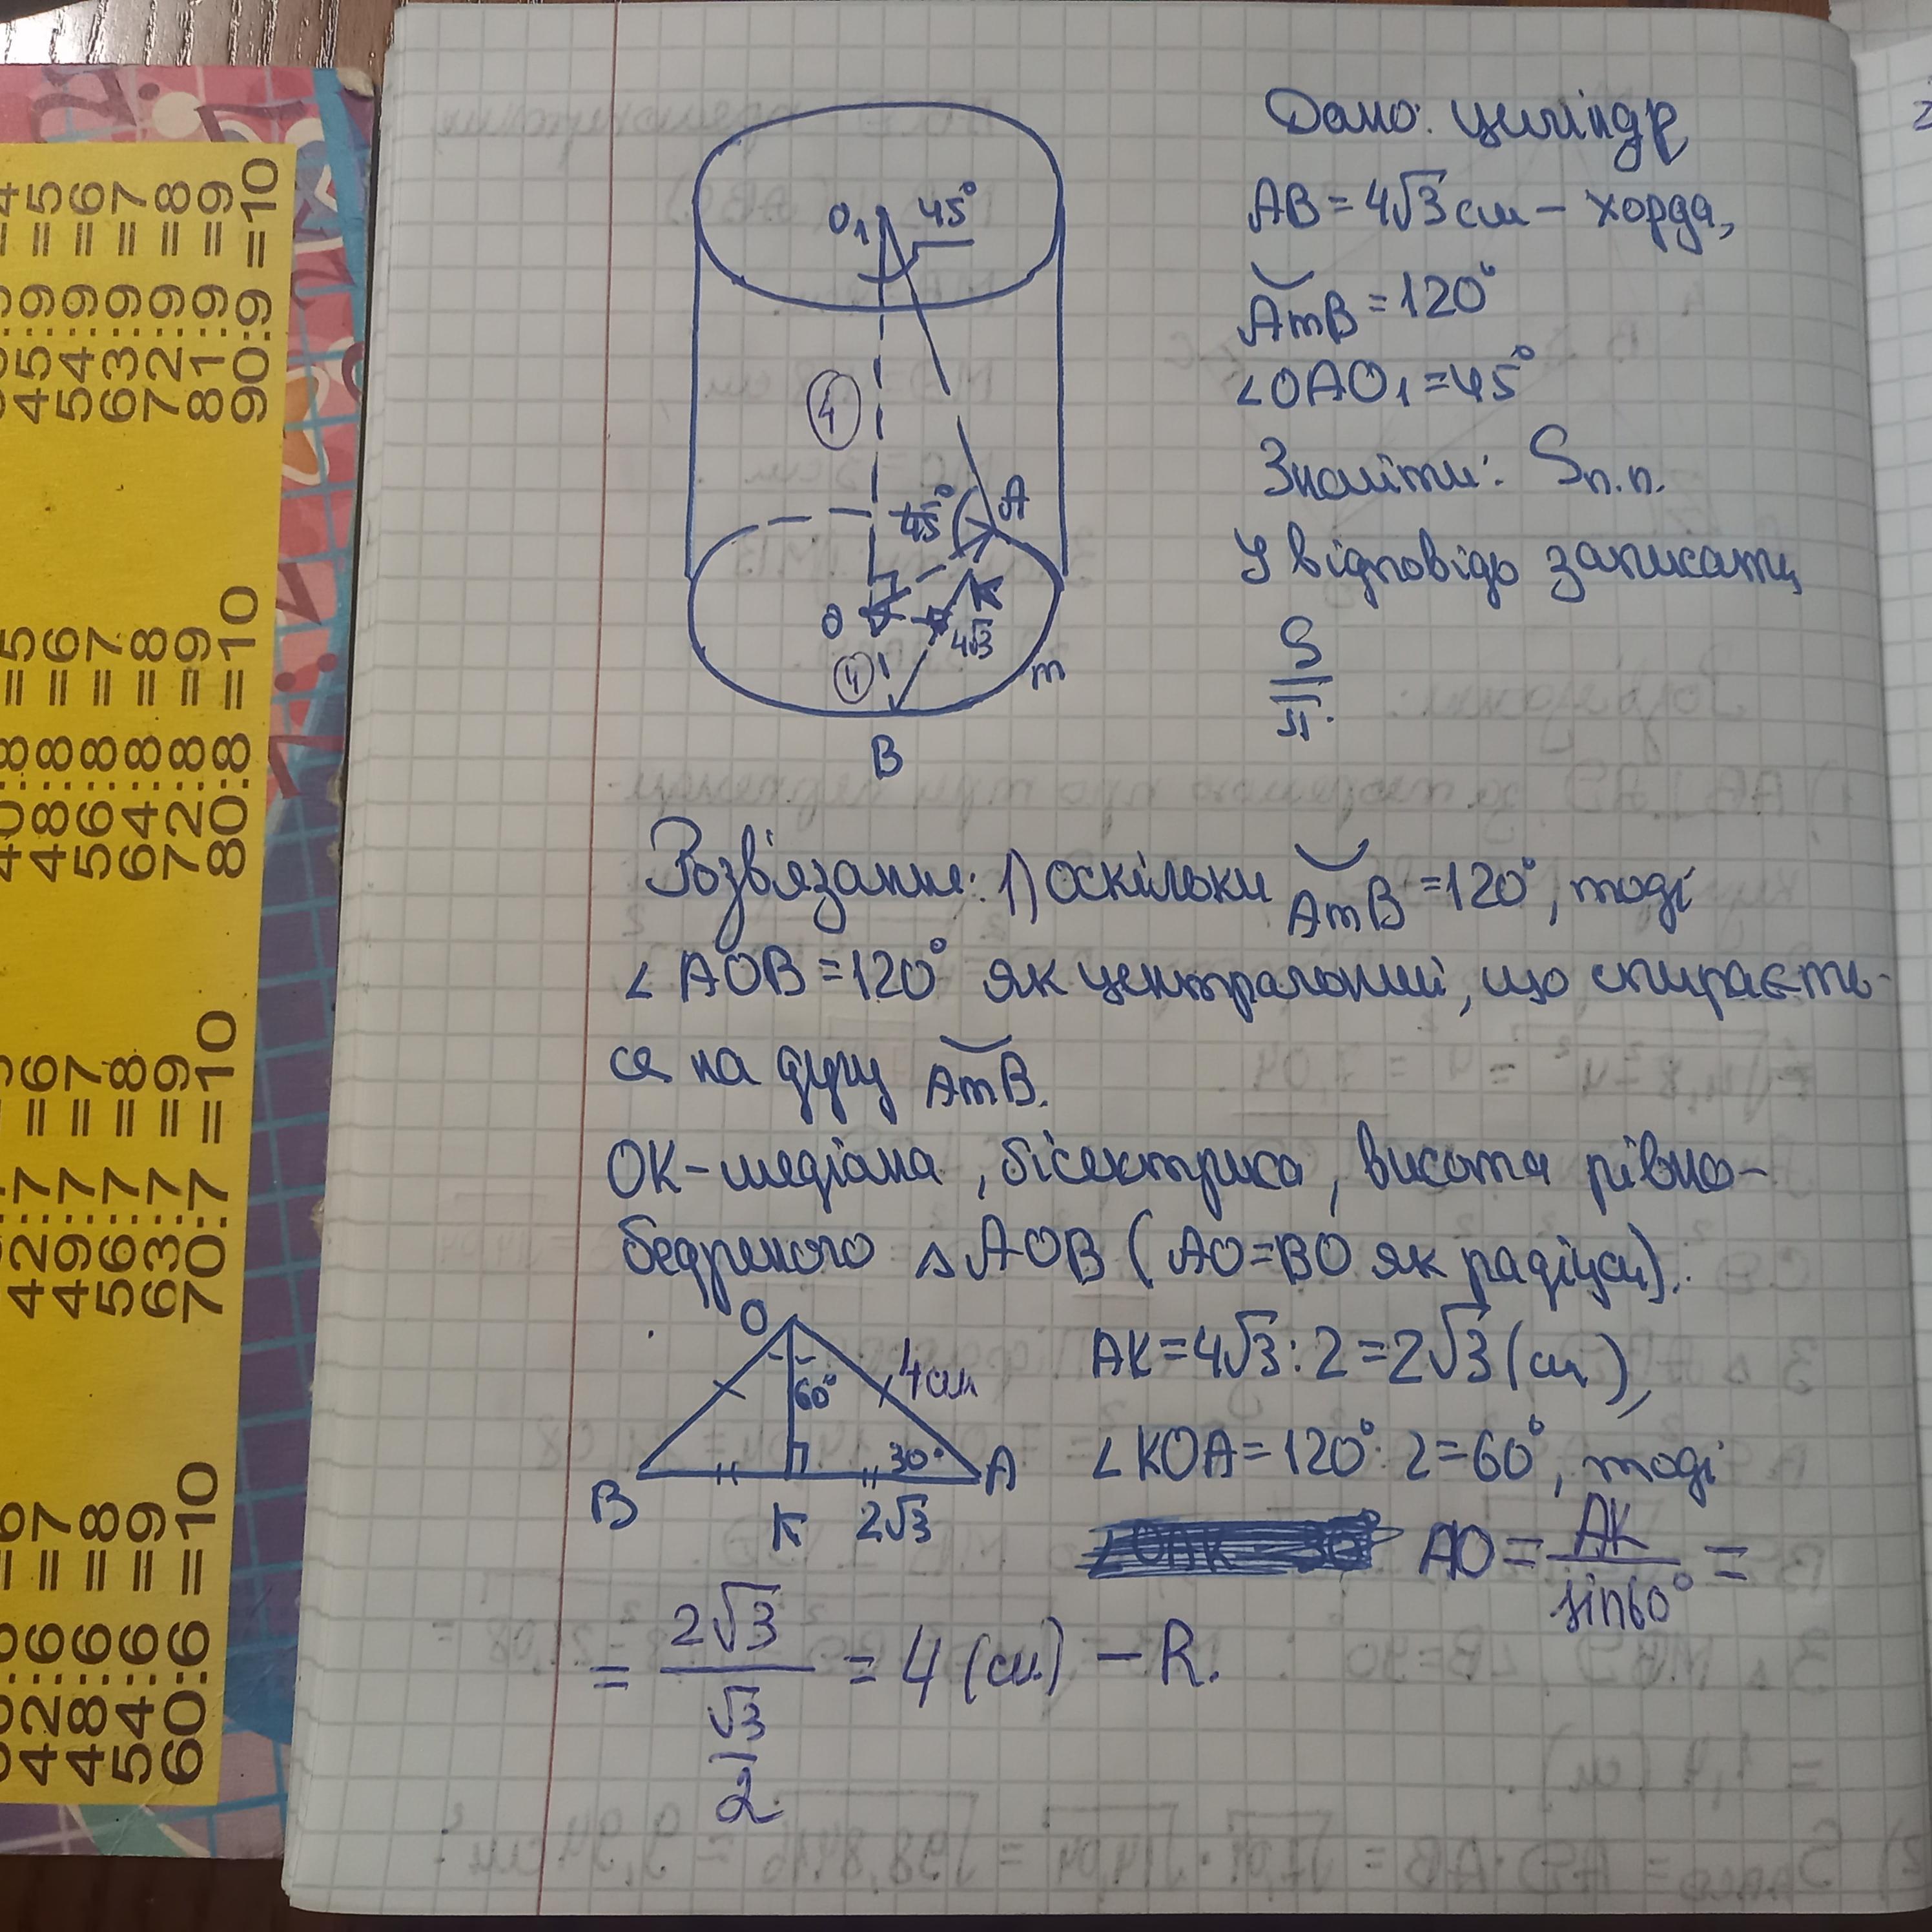 Дано: циліндр
AB = 4√3 см – хорда,
AmB = 120°
∠OAO₁ = 45°
Знайти: Sп.п.
У відповідь записати
S
π.
O₁ 45°
4
45° A
O K
4√3
4 m
B
Розв'язання: 1) оскільки AmB = 120°, тоді
∠AOB = 120° як центральний, що спираєть-
ся на дугу AmB.
OK – медіана, бісектриса, висота рівно-
бедреного △AOB (AO = BO як радіуси).
O
60° 4 см
30°
B K 2√3 A
AK = 4√3 : 2 = 2√3 (см),
∠KOA = 120° : 2 = 60°, тоді
AO = AK / sin60° =
= 2√3 / (√3 / 2) = 4 (см) – R.
=5
=6
=7
=8
=9
=10
45:9
54:9
63:9
72:9
81:9
90:9
=5
=6
=7
=8
=9
=10
48:8
56:8
64:8
72:8
80:8
=6
=7
=8
=9
=10
42:7
49:7
56:7
63:7
70:7
=7
=8
=9
=10
42:6
48:6
54:6
60:6